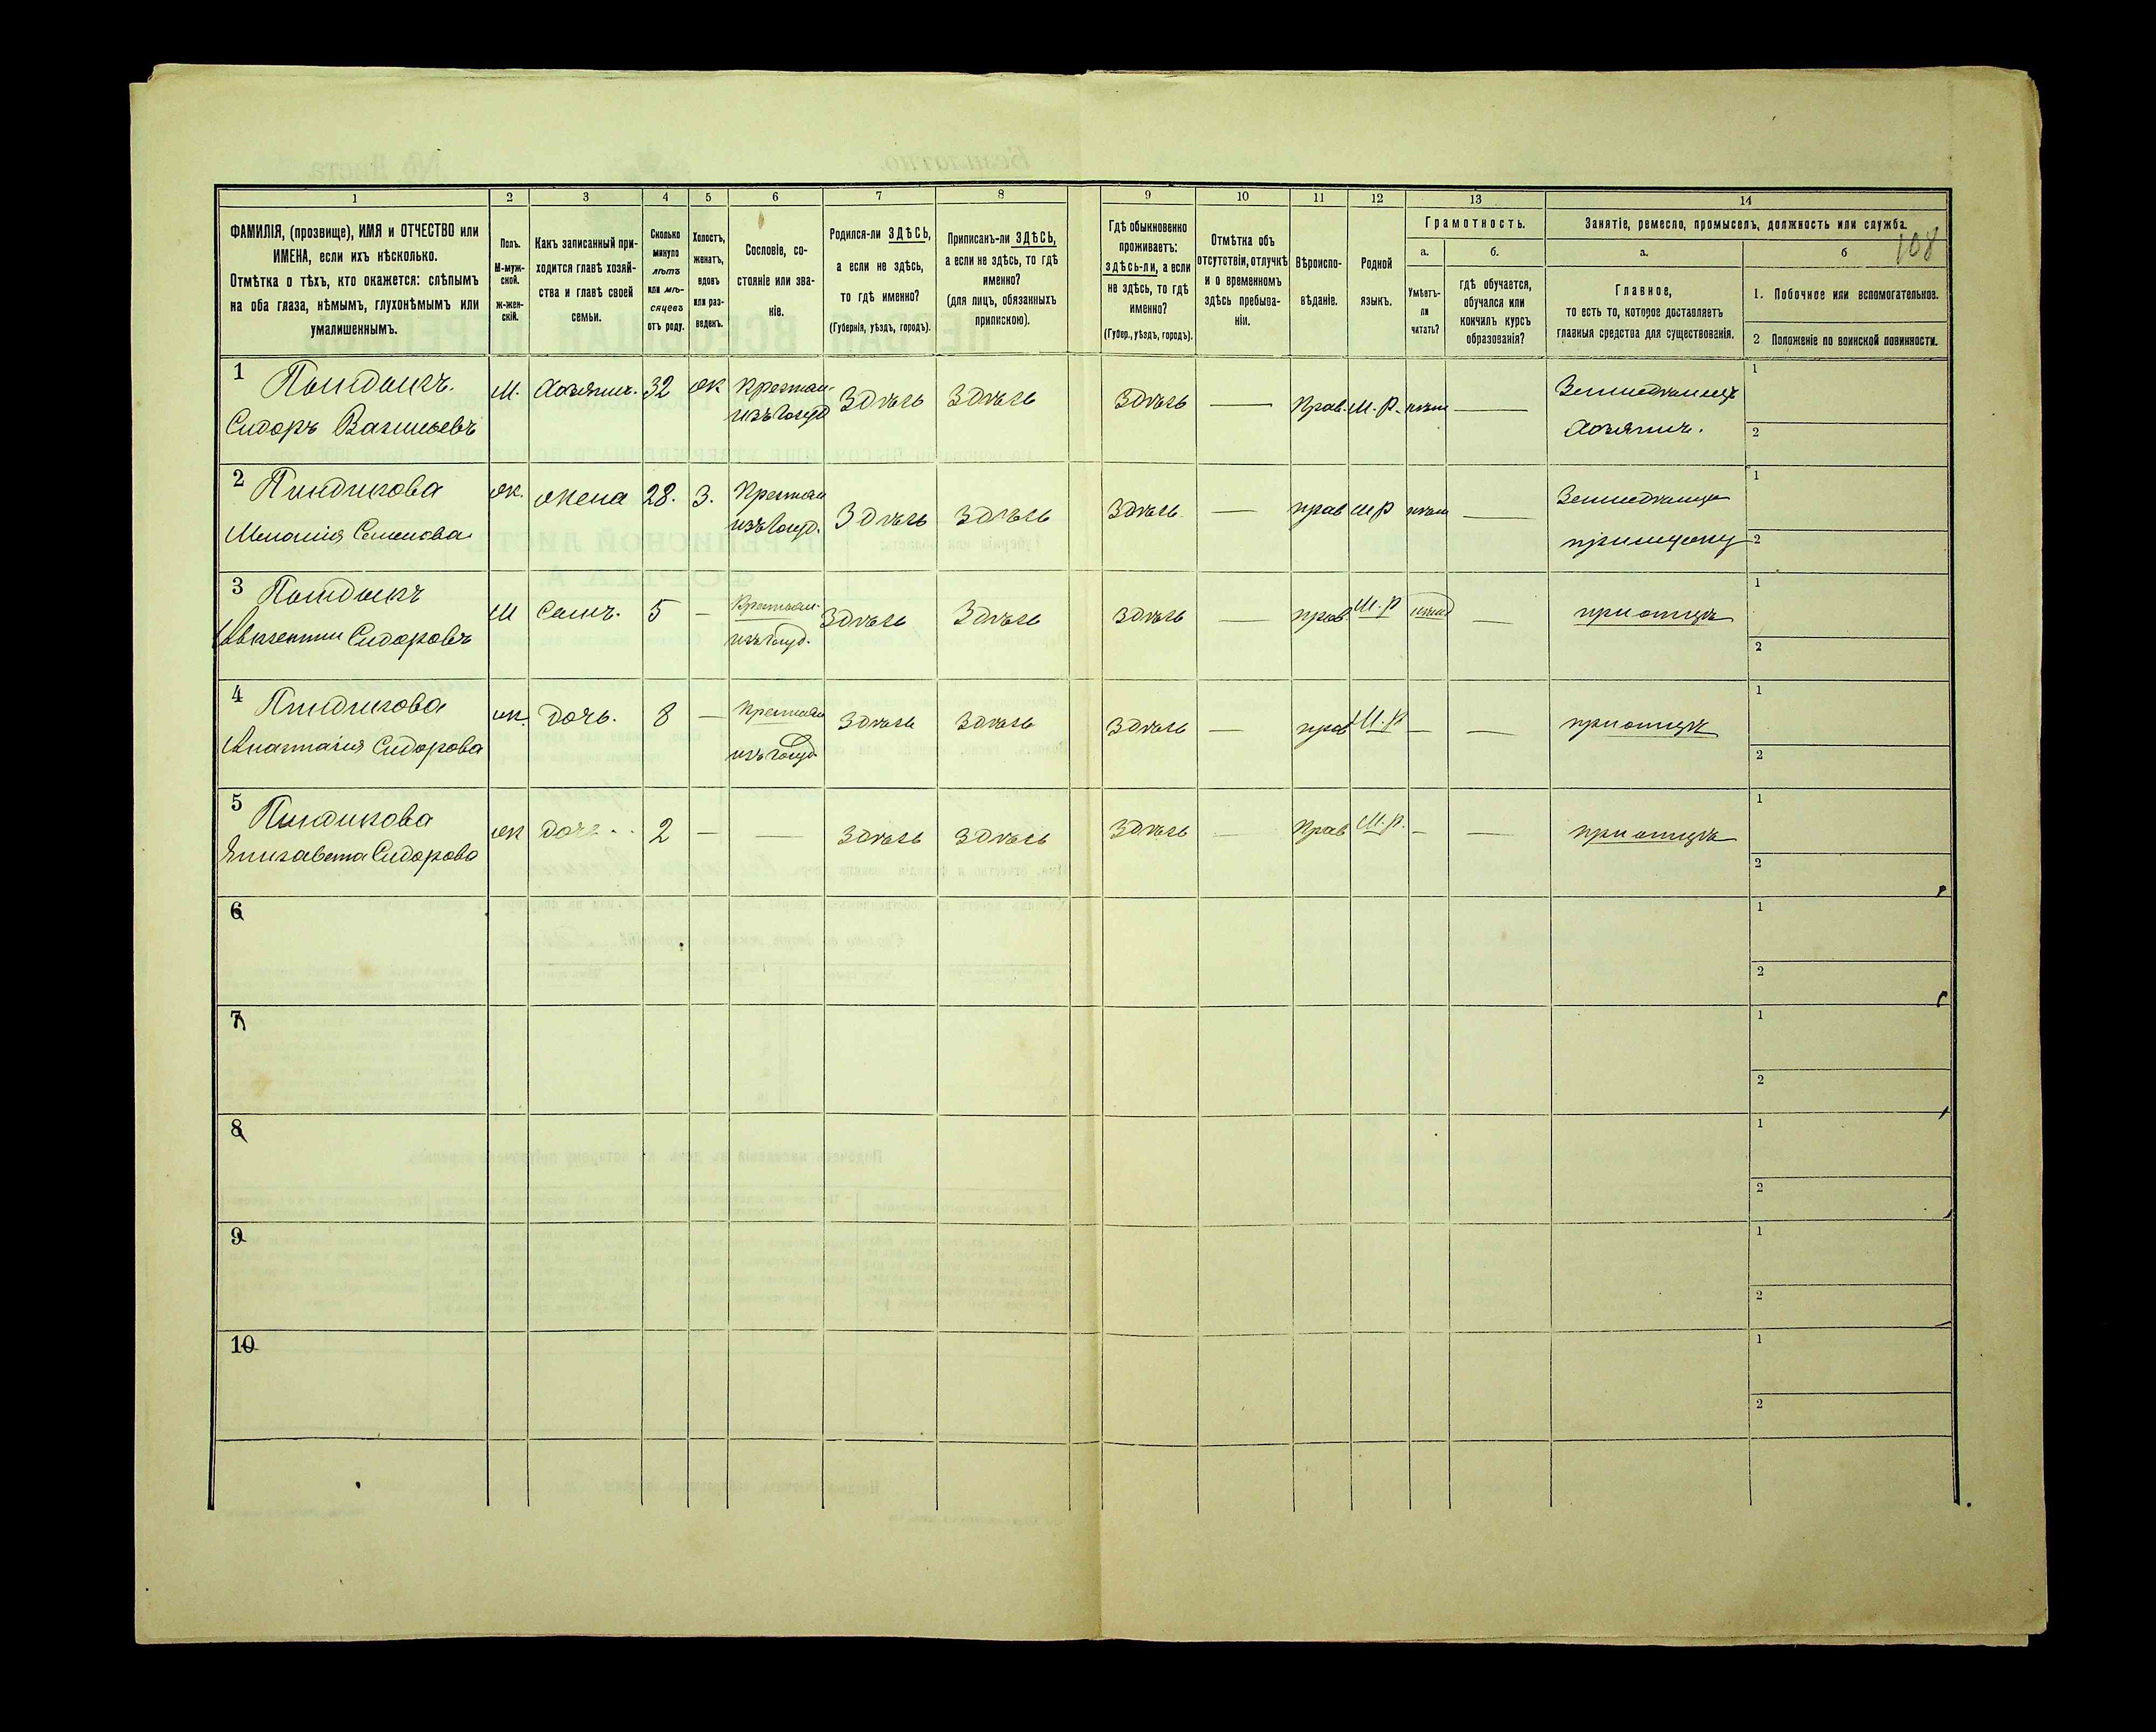 108
1
2
3
4
5
6
7
8
9
10
11
12
13
14
ФАМИЛІЯ, (прозвище), ИМЯ и ОТЧЕСТВО или
ИМЕНА, если ихъ нѣсколько.
Отмѣтка о тѣхъ, кто окажется: слѣпымъ
на оба глаза, нѣмымъ, глухонѣмымъ или
умалишеннымъ.
Полъ.
М-муж-
ской.
ж-жен-
скій.
Какъ записанный при-
ходится главѣ хозяй-
ства и главѣ своей
семьи.
Сколько
минуло
лѣтъ
или мѣ-
сяцевъ
отъ роду.
Холостъ,
женатъ,
вдовъ
или раз-
веденъ.
Сословіе, со-
стояніе или зва-
ніе.
Родился-ли ЗДѢСЬ,
а если не здѣсь,
то гдѣ именно?
(Губернія, уѣздъ, городъ).
Приписанъ-ли ЗДѢСЬ,
а если не здѣсь, то гдѣ
именно?
(для лицъ, обязанныхъ
припискою).
Гдѣ обыкновенно
проживаетъ:
здѣсь-ли, а если
не здѣсь, то гдѣ
именно?
(Губер., уѣздъ, городъ).
Отмѣтка объ
отсутствіи, отлучкѣ
и о временномъ
здѣсь пребыва-
ніи.
Вѣроиспо-
вѣданіе.
Родной
языкъ.
Грамотность.
а.
Умѣетъ-
ли
читать?
б.
гдѣ обучается,
обучался или
кончилъ курсъ
образованія?
Занятіе, ремесло, промыселъ, должность или служба.
а.
Главное,
то есть то, которое доставляетъ
главныя средства для существованія.
б
1. Побочное или вспомогательное.
2 Положеніе по воинской повинности.
1
Сидоръ Васильевъ
М. Хозяинъ. 32 ж Крестьян. изъ госуд Здѣсь Здѣсь Здѣсь — Прав. М. Р. нѣт —
Земледѣлецъ
Хозяинъ.
1
2
2 Пиндикова
Меланія Семенова
ж. жена 28. З. Крестьян изъ госуд. Здѣсь Здѣсь Здѣсь — прав м р нѣт —
1
2
3
Сидоровъ
М Сынъ. 5 — Крестьян. изъ госуд. Здѣсь Здѣсь Здѣсь — прав. М. р —
при отцѣ
1
2
4 Пиндикова
Анастасія Сидорова
ж. дочь. 8 — Крестьян изъ госуд Здѣсь Здѣсь Здѣсь — прав М. р — —
при отцѣ
1
2
5 Пиндикова
Елизавета Сидорова
ж дочь 2 — — Здѣсь Здѣсь Здѣсь — Прав М. р. — —
при отцѣ
1
2
6
1
2
7
1
2
8
1
2
9
1
2
10
1
2